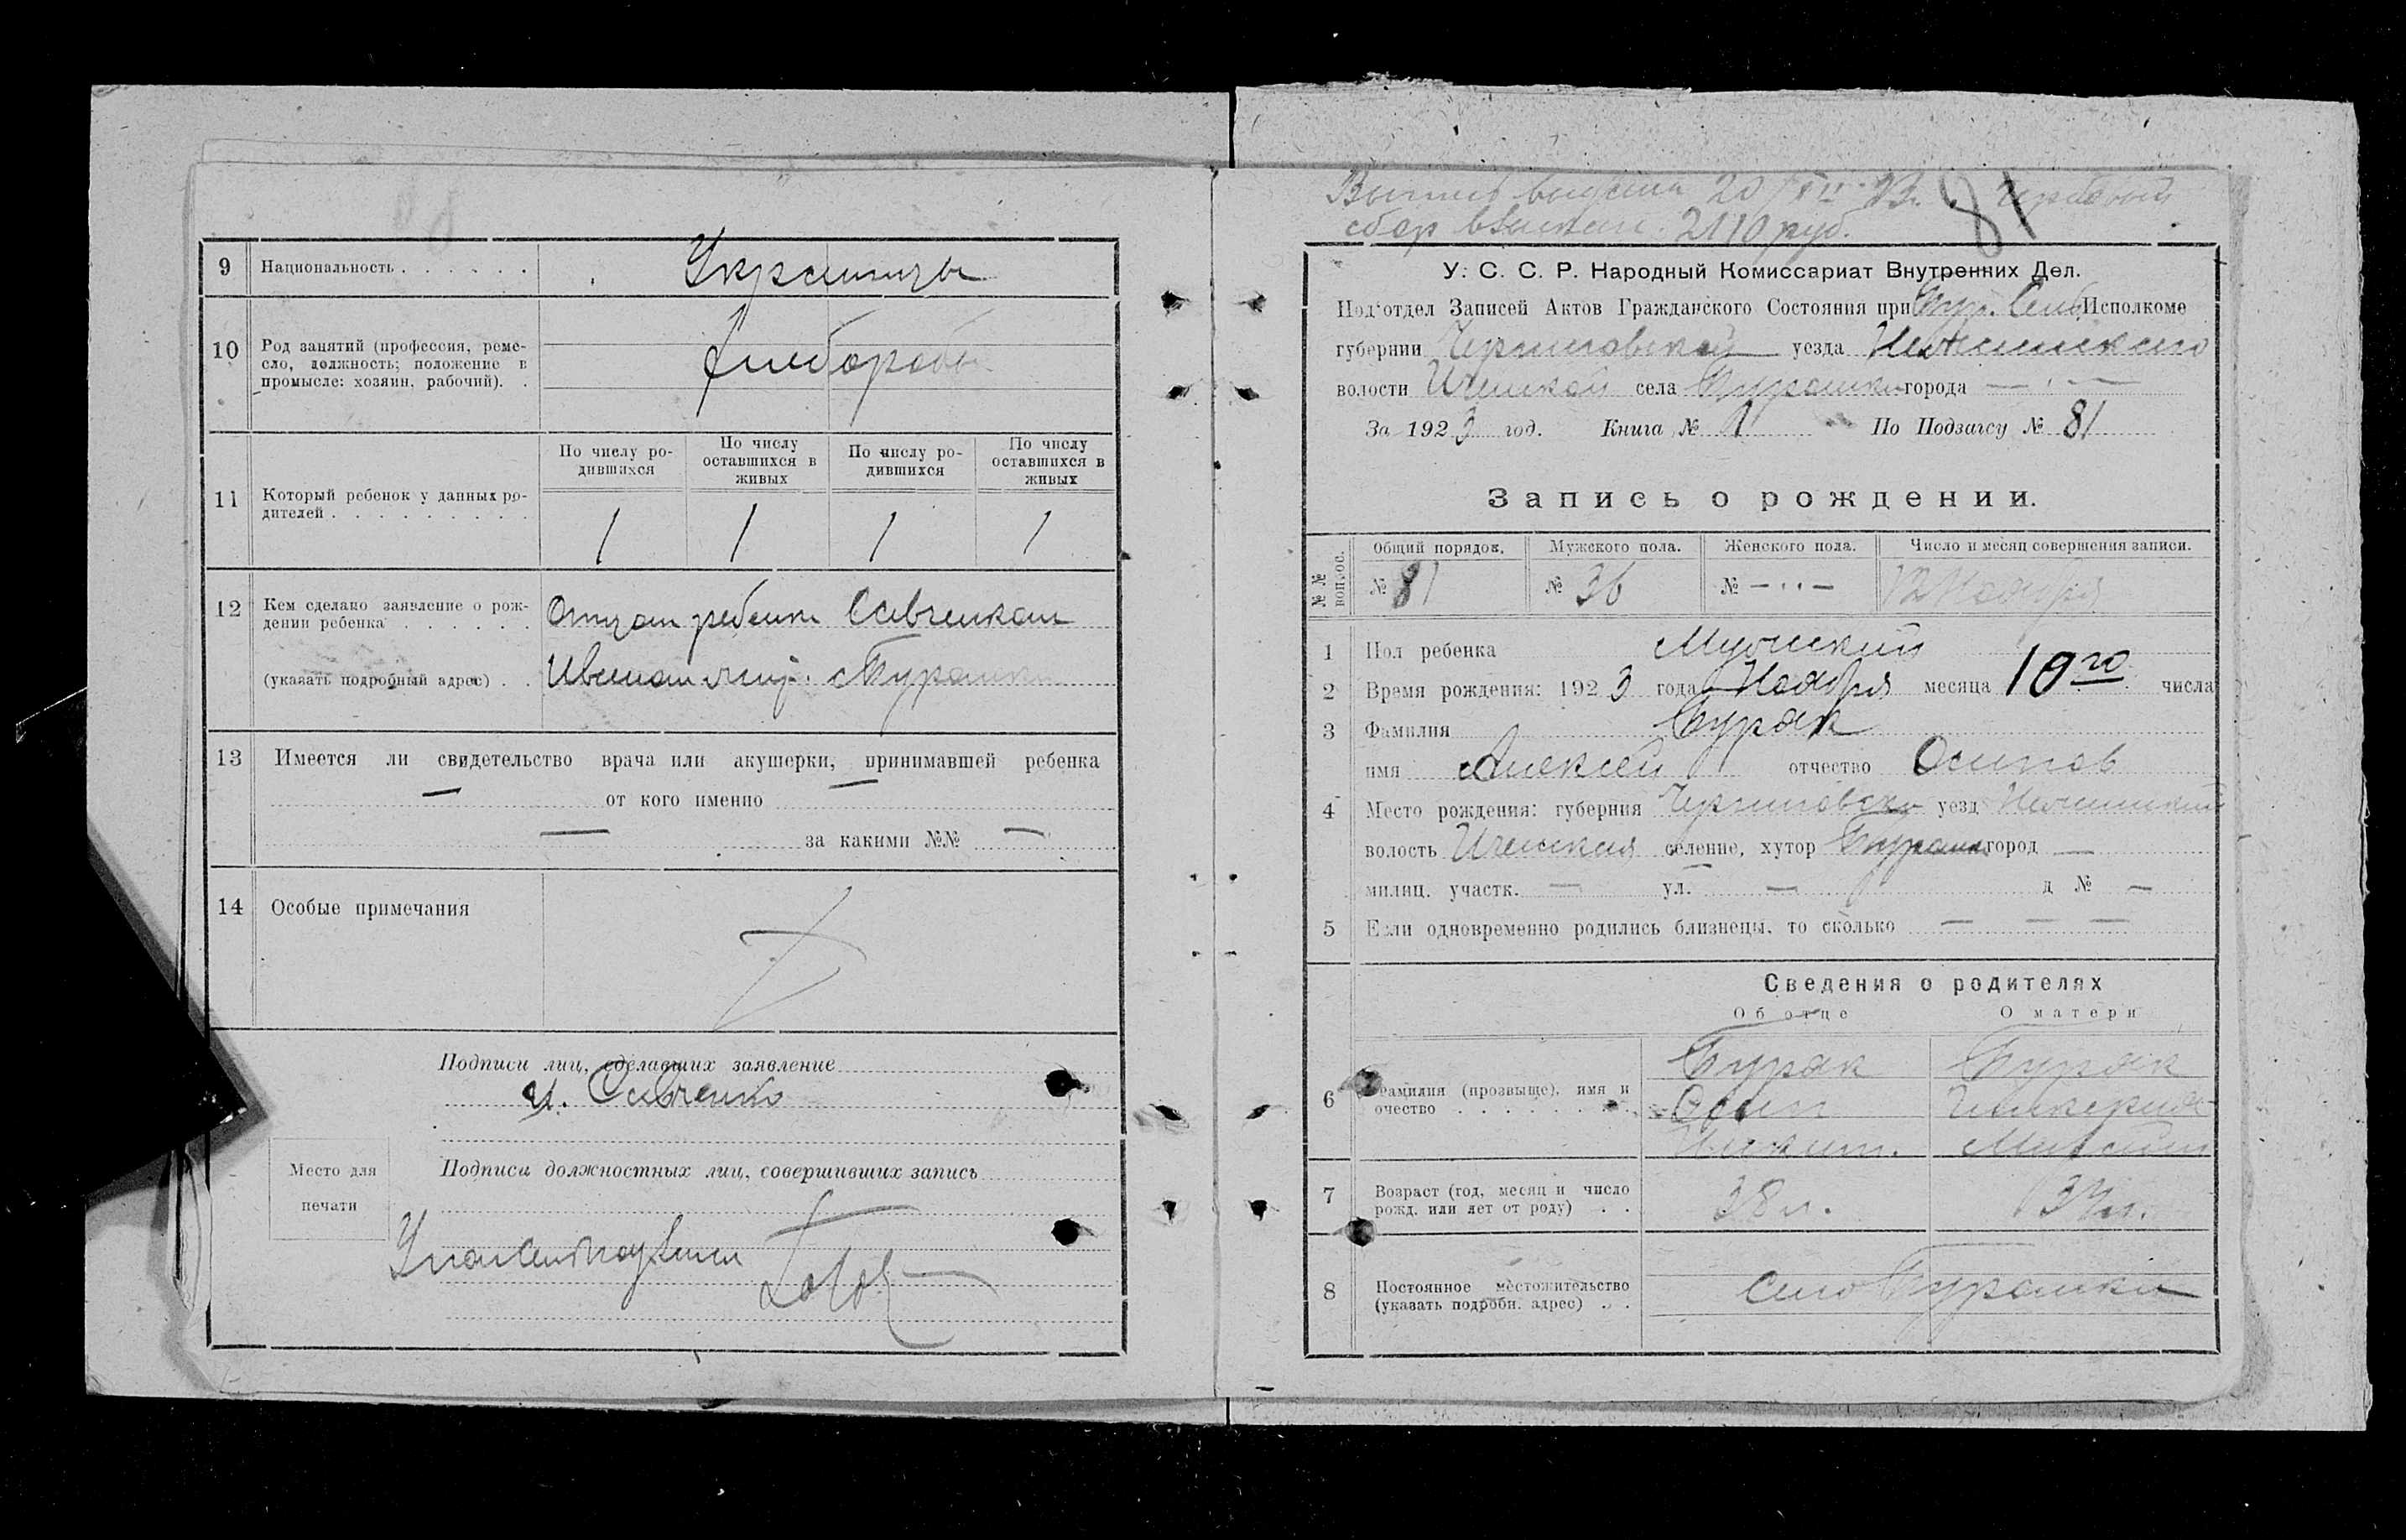 9 Национальность . . . . . . Украинцы
10 Род занятий (профессия, реме-
сло, должность; положение в
промысле: хозяин, рабочий). . Хлеборобы
По числу ро-
дившихся
По числу
оставшихся в
живых
По числу ро-
дившихся
По числу
оставшихся в
живых
11 Который ребенок у данных ро-
дителей . . . . . . . . . 1 1 1 1
12 Кем сделано заявление о рож-
дении ребенка . . . . . . Отцом ребенка Савченком
(указать подробный адрес) . . Иваном
13 Имеется ли свидетельство врача или акушерки, принимавшей ребенка
— от кого именно —
— за какими №№ —
14 Особые примечания
Подписи лиц, сделавших заявление
И. Савченко
Место для
печати
Подписи должностных лиц, совершивших запись
81
сбор взыскан. 2110 руб.
У. С. С. Р. Народный Комиссариат Внутренних Дел.
Под'отдел Записей Актов Гражданского Состояния при Исполкоме
губернии Черниговской уезда Нежинского
волости Иченской села Бурамки города —
За 1923 год. Книга № 1 По Подзагсу № 81
Запись о рождении.
№ № вопрос.
Общий порядок. Мужского пола. Женского пола. Число и месяц совершения записи.
№ 81 № 36 № — 12 Ноября
1 Пол ребенка Мужский
2 Время рождения: 1923 года Ноября месяца 10го числа
3 Фамилия Бурак
имя Алексей отчество Осипов
4 Место рождения: губерния Черниговска уезд Нежинский
волость Иченская селение, хутор Бурамка город —
милиц. участк. — ул. — д № —
5 Если одновременно родились близнецы, то сколько — — —
Сведения о родителях
Об отце О матери
6 Фамилия (прозвыще), имя и
очество . . . . . . . .
Бурак Бурак
Осип
Никит.
7 Возраст (год, месяц и число
рожд. или лет от роду) . . 38 л.
8 Постоянное местожительство
(указать подробн. адрес) . . село Бурамка